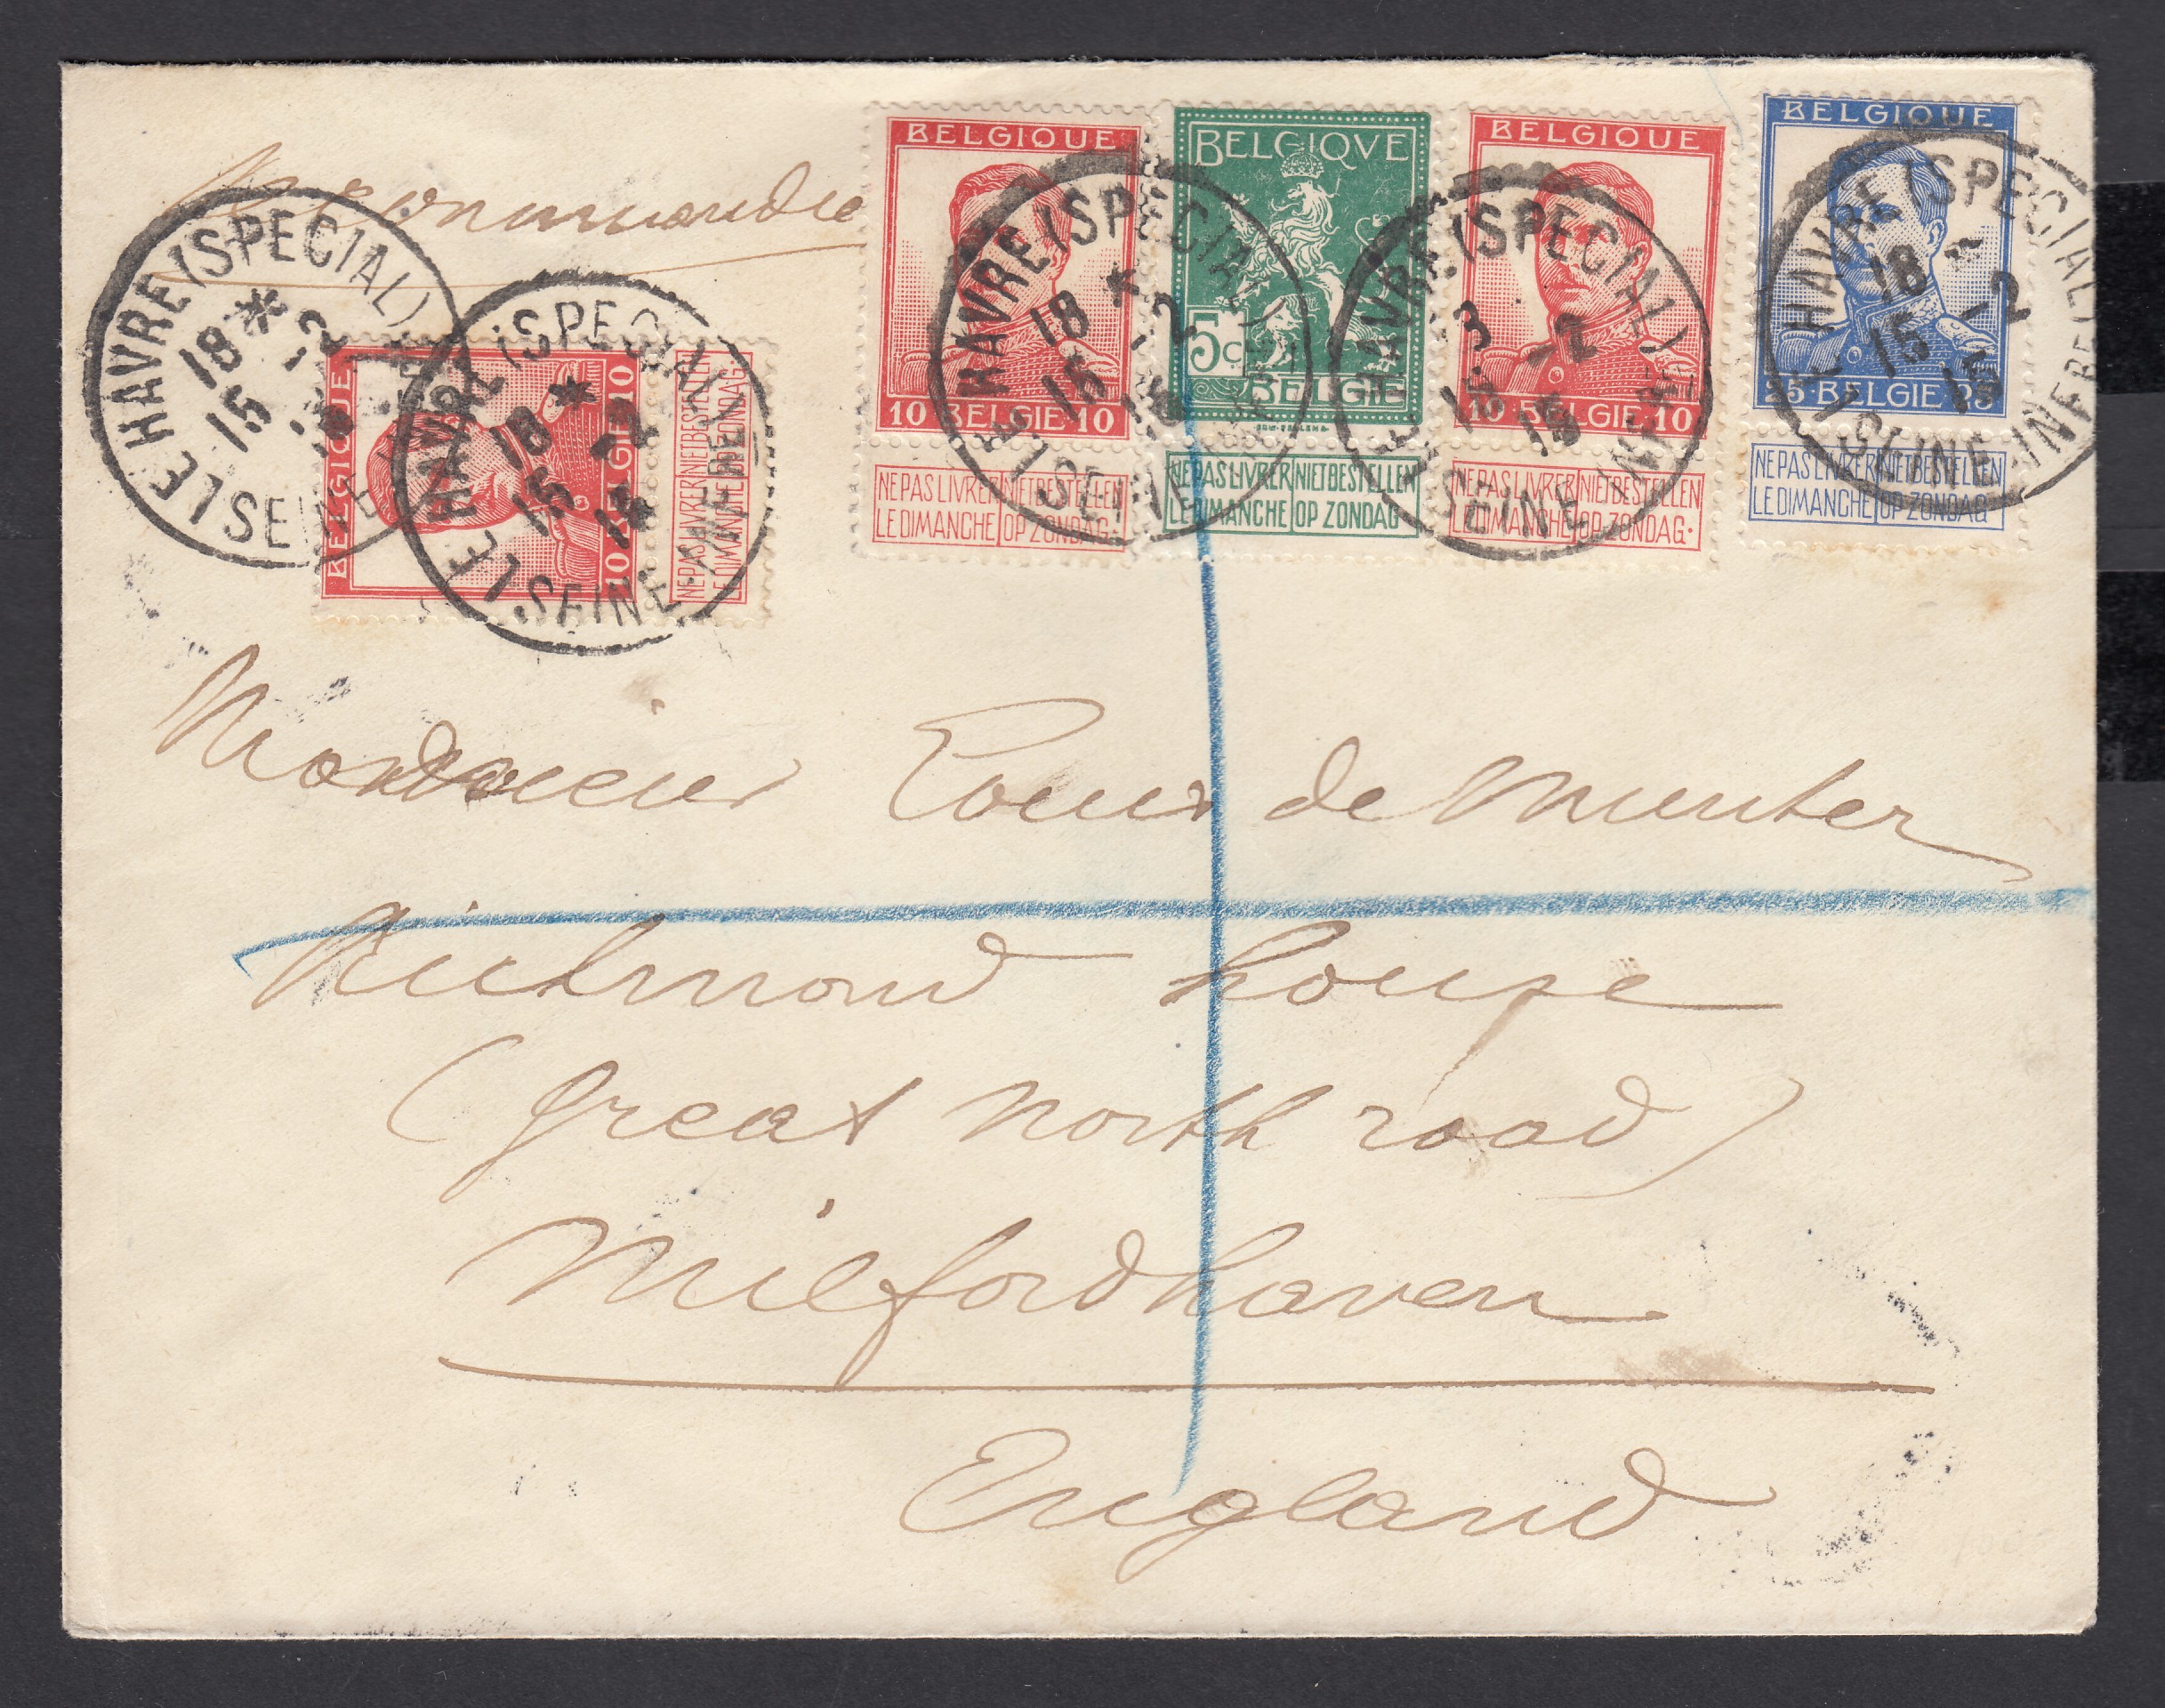 Recommandée
BELGIQUE
10 BELGIE 10
NE PAS LIVRER LE DIMANCHE
NIET BESTELLEN OP ZONDAG
BELGIQVE
5c
BELGIE
NE PAS LIVRER LE DIMANCHE
NIET BESTELLEN OP ZONDAG
BELGIQUE
10 BELGIE 10
NE PAS LIVRER LE DIMANCHE
NIET BESTELLEN OP ZONDAG.
BELGIQUE
25 BELGIE 25
NE PAS LIVRER LE DIMANCHE
NIET BESTELLEN OP ZONDAG
BELGIQUE
10 BELGIE 10
NE PAS LIVRER LE DIMANCHE
NIET BESTELLEN OP ZONDAG
LE HAVRE (SPECIAL)
18 * -2
15
SEINE
LE HAVRE (SPECIAL)
18 * -2
15 15
SEINE-INFRE
LE HAVRE (SPECIAL)
18 * -2
15 15
SEINE
LE HAVRE (SPECIAL)
-2
15 15
SEINE INFRE
LE HAVRE (SPECIAL)
18 * -2
15 15
SEINE INFRE
Monsieur Louis de Munter
Richmond house
(Great North road)
Milfordhaven
England